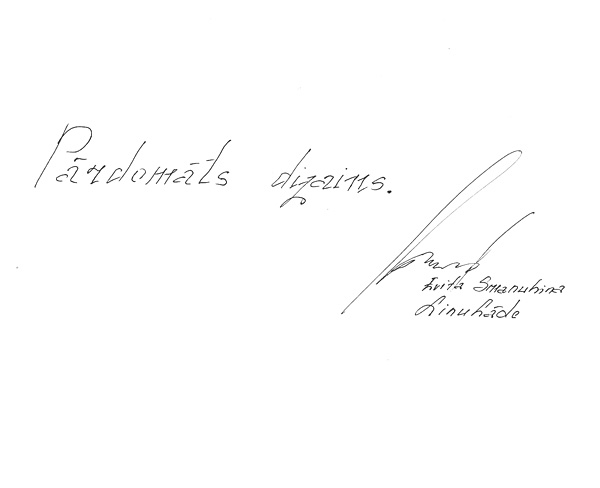 Pārdomāts dizains.
Evita Smanuhina